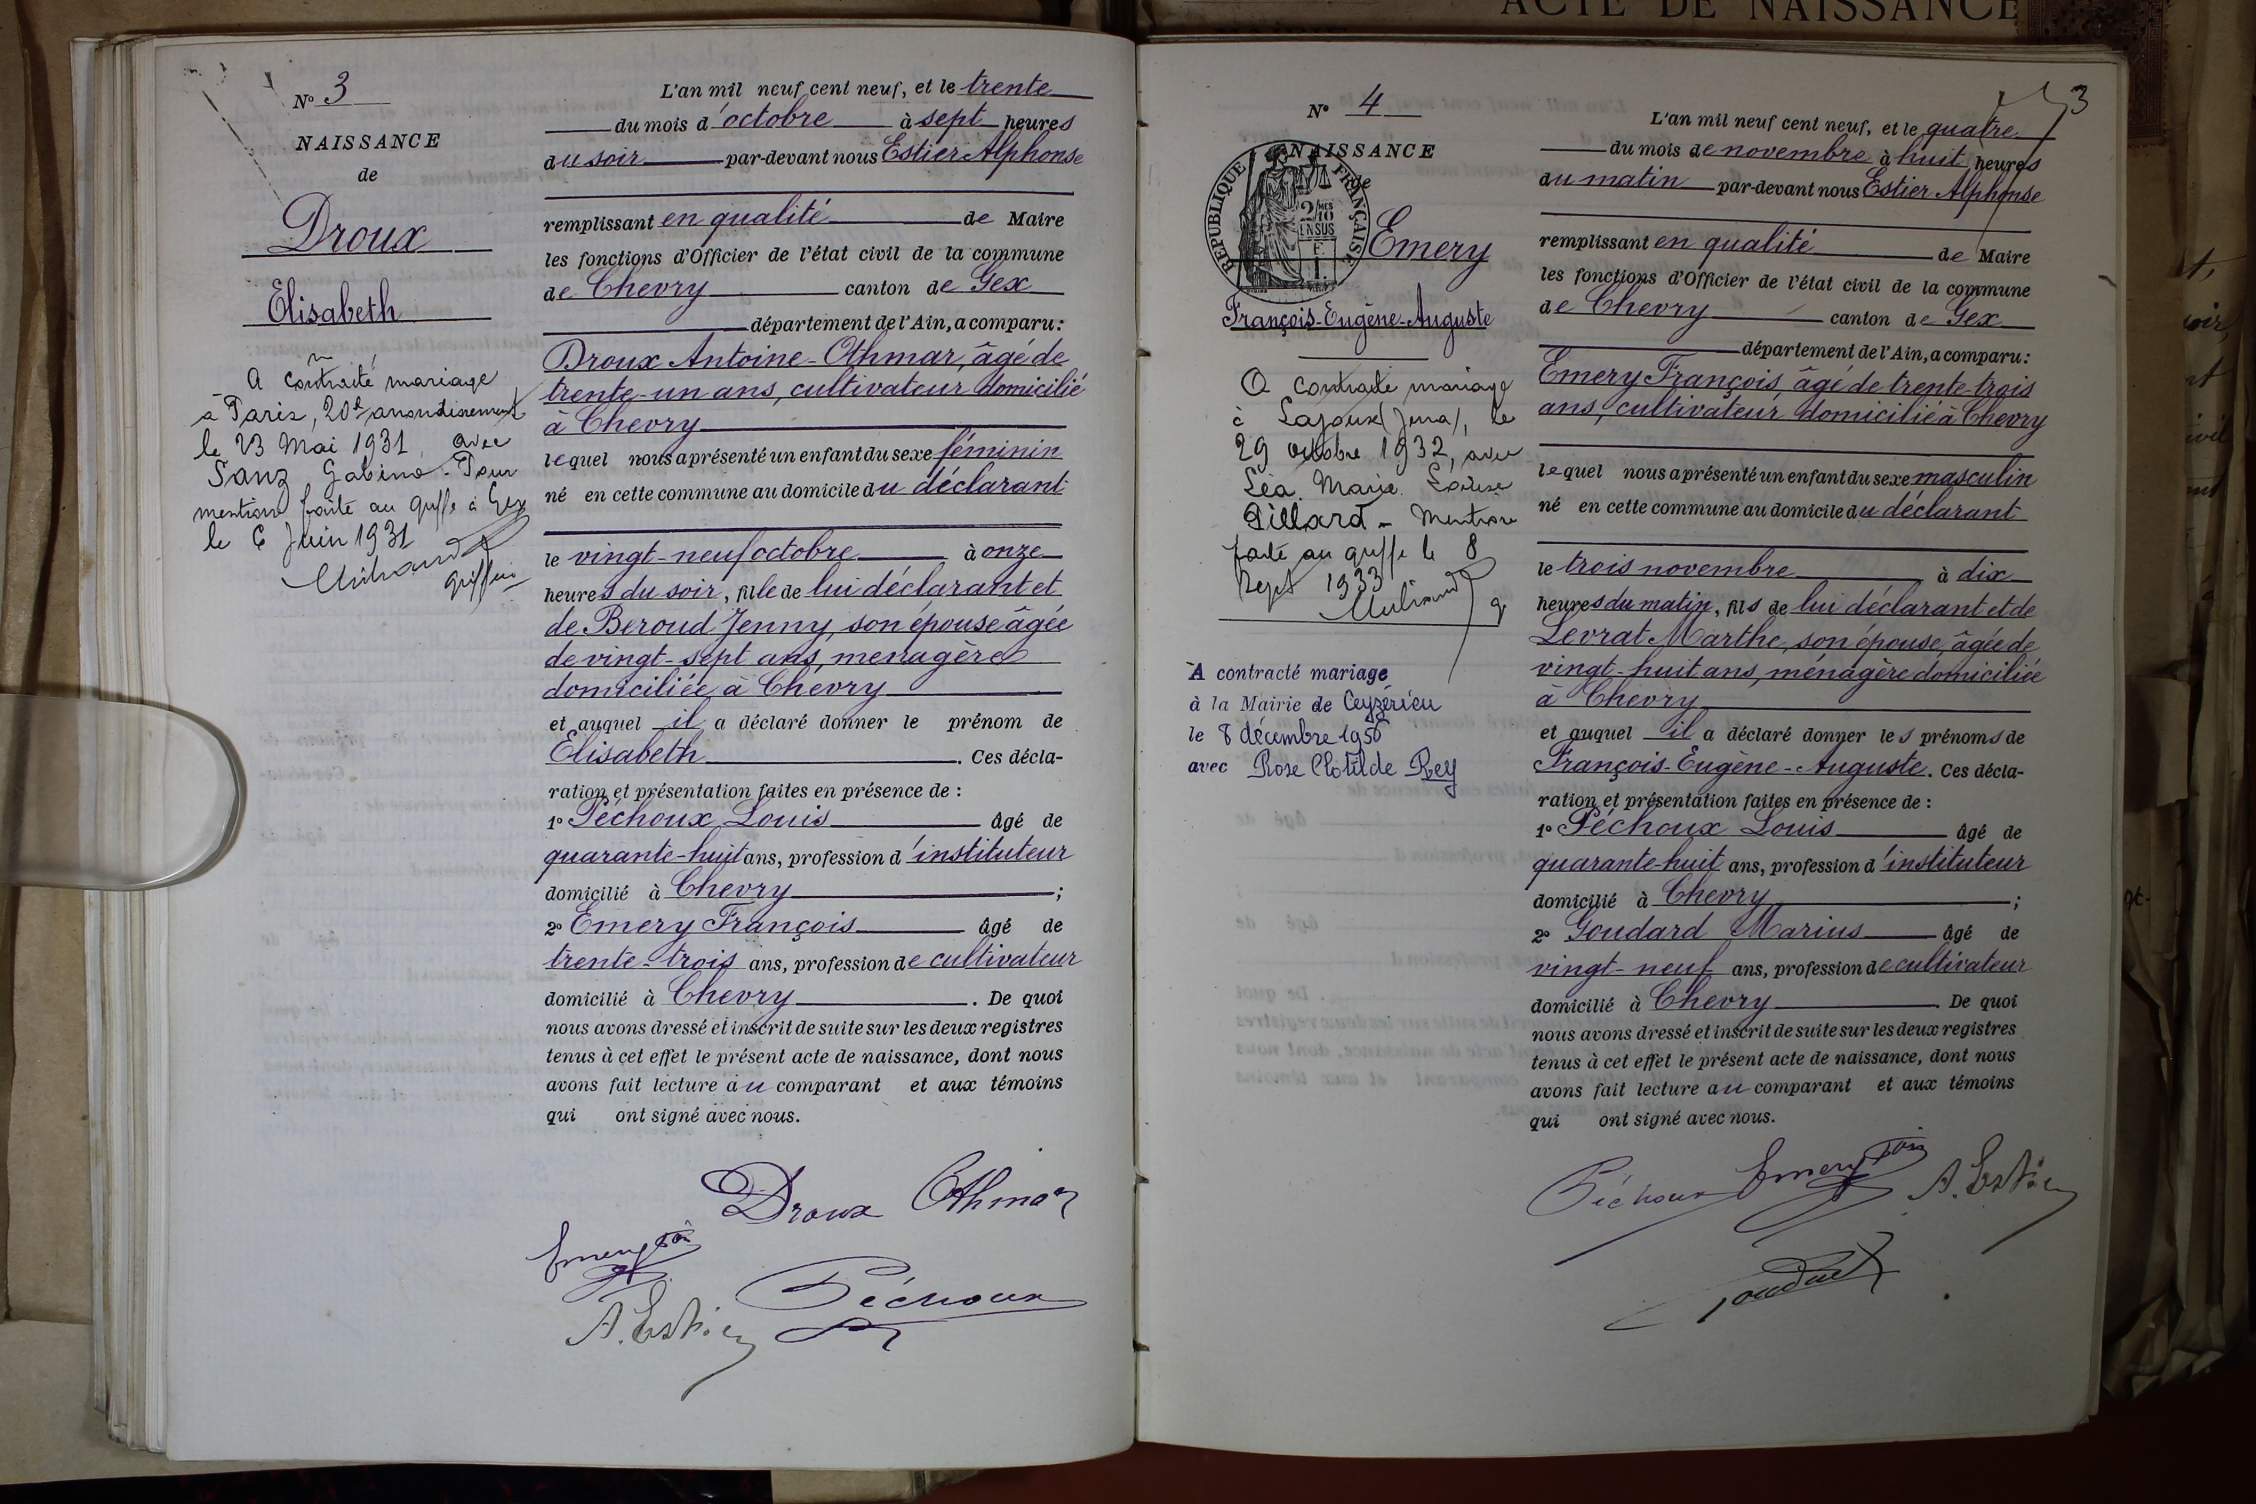 ACTE DE NAISSANCE
No 3
NAISSANCE
de
Droux
Elisabeth
A contracté mariage
à Paris, 20e arrondissement
le 23 Mai 1931 avec
Sanz Gabino - Pour
mention faite au greffe à Gex
le 6 Juin 1931
greffier
L'an mil neuf cent neuf, et le trente
du mois d'octobre à sept heures
du soir par-devant nous Estier Alphonse
remplissant en qualité de Maire
les fonctions d'Officier de l'état civil de la commune
de Chevry canton de Gex
département de l'Ain, a comparu :
Droux Antoine-Othmar, âgé de
trente-un ans, cultivateur domicilié
à Chevry
lequel nous a présenté un enfant du sexe féminin
né en cette commune au domicile du déclarant
le vingt-neuf octobre à onze
heures du soir, fille de lui déclarant et
de Beroud Jenny, son épouse âgée
de vingt-sept ans, menagère
domiciliée à Chevry
et auquel il a déclaré donner le prénom de
Elisabeth. Ces décla-
ration et présentation faites en présence de :
1o Péchoux Louis âgé de
quarante-huit ans, profession d'instituteur
domicilié à Chevry ;
2o Emery François âgé de
trente-trois ans, profession de cultivateur
domicilié à Chevry. De quoi
nous avons dressé et inscrit de suite sur les deux registres
tenus à cet effet le présent acte de naissance, dont nous
avons fait lecture au comparant et aux témoins
qui ont signé avec nous.
Droux Othmar
Emery Fois
Péchoux
A. Estier
3
No 4
NAISSANCE
de
RÉPUBLIQUE FRANÇAISE
2/10 MES
EN SUS
Emery
François-Eugène-Auguste
A contracté mariage
à Lajoux (Jura), le
29 octobre 1932, avec
Léa Marie Louise
Gillard - Mention
faite au greffe le 8
Sept 1933
A contracté mariage
à la Mairie de Ceyzérieu
le 8 décembre 1956
avec Rose Clotilde Rey
L'an mil neuf cent neuf, et le quatre
du mois de novembre à huit heures
du matin par-devant nous Estier Alphonse
remplissant en qualité de Maire
les fonctions d'Officier de l'état civil de la commune
de Chevry canton de Gex
département de l'Ain, a comparu :
Emery François, âgé de trente-trois
ans, cultivateur domicilié à Chevry
lequel nous a présenté un enfant du sexe masculin
né en cette commune au domicile du déclarant
le trois novembre à dix
heures du matin, fils de lui déclarant et de
Levrat Marthe, son épouse, âgée de
vingt-huit ans, ménagère domiciliée
à Chevry
et auquel il a déclaré donner les prénoms de
François-Eugène-Auguste. Ces décla-
ration et présentation faites en présence de :
1o Péchoux Louis âgé de
quarante-huit ans, profession d'instituteur
domicilié à Chevry ;
2o Goudard Marius âgé de
vingt-neuf ans, profession de cultivateur
domicilié à Chevry. De quoi
nous avons dressé et inscrit de suite sur les deux registres
tenus à cet effet le présent acte de naissance, dont nous
avons fait lecture au comparant et aux témoins
qui ont signé avec nous.
Péchoux Emery Fois A. Estier